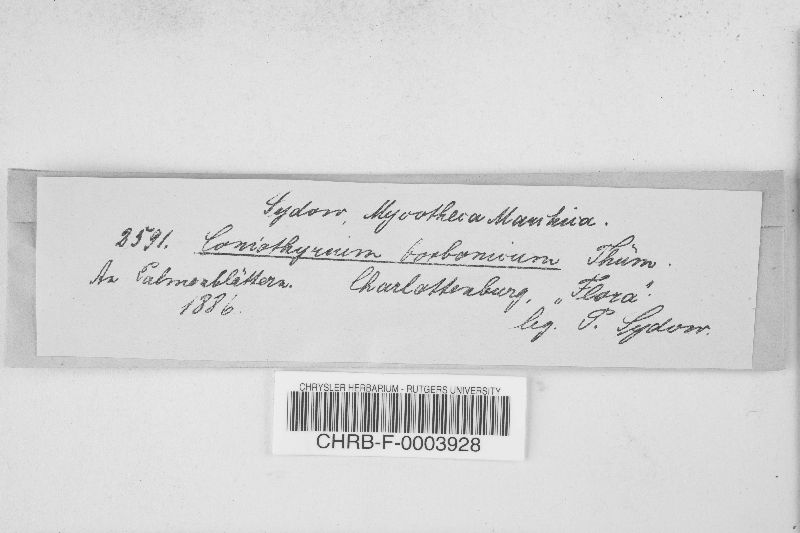 Sydow, Mycotheca Marchica.
2591. Coniothyrium borbonicum Thüm.
An Palmenblättern. Charlottenburg, „Flora".
1886. leg. P. Sydow.
CHRYSLER HERBARIUM - RUTGERS UNIVERSITY
CHRB-F-0003928